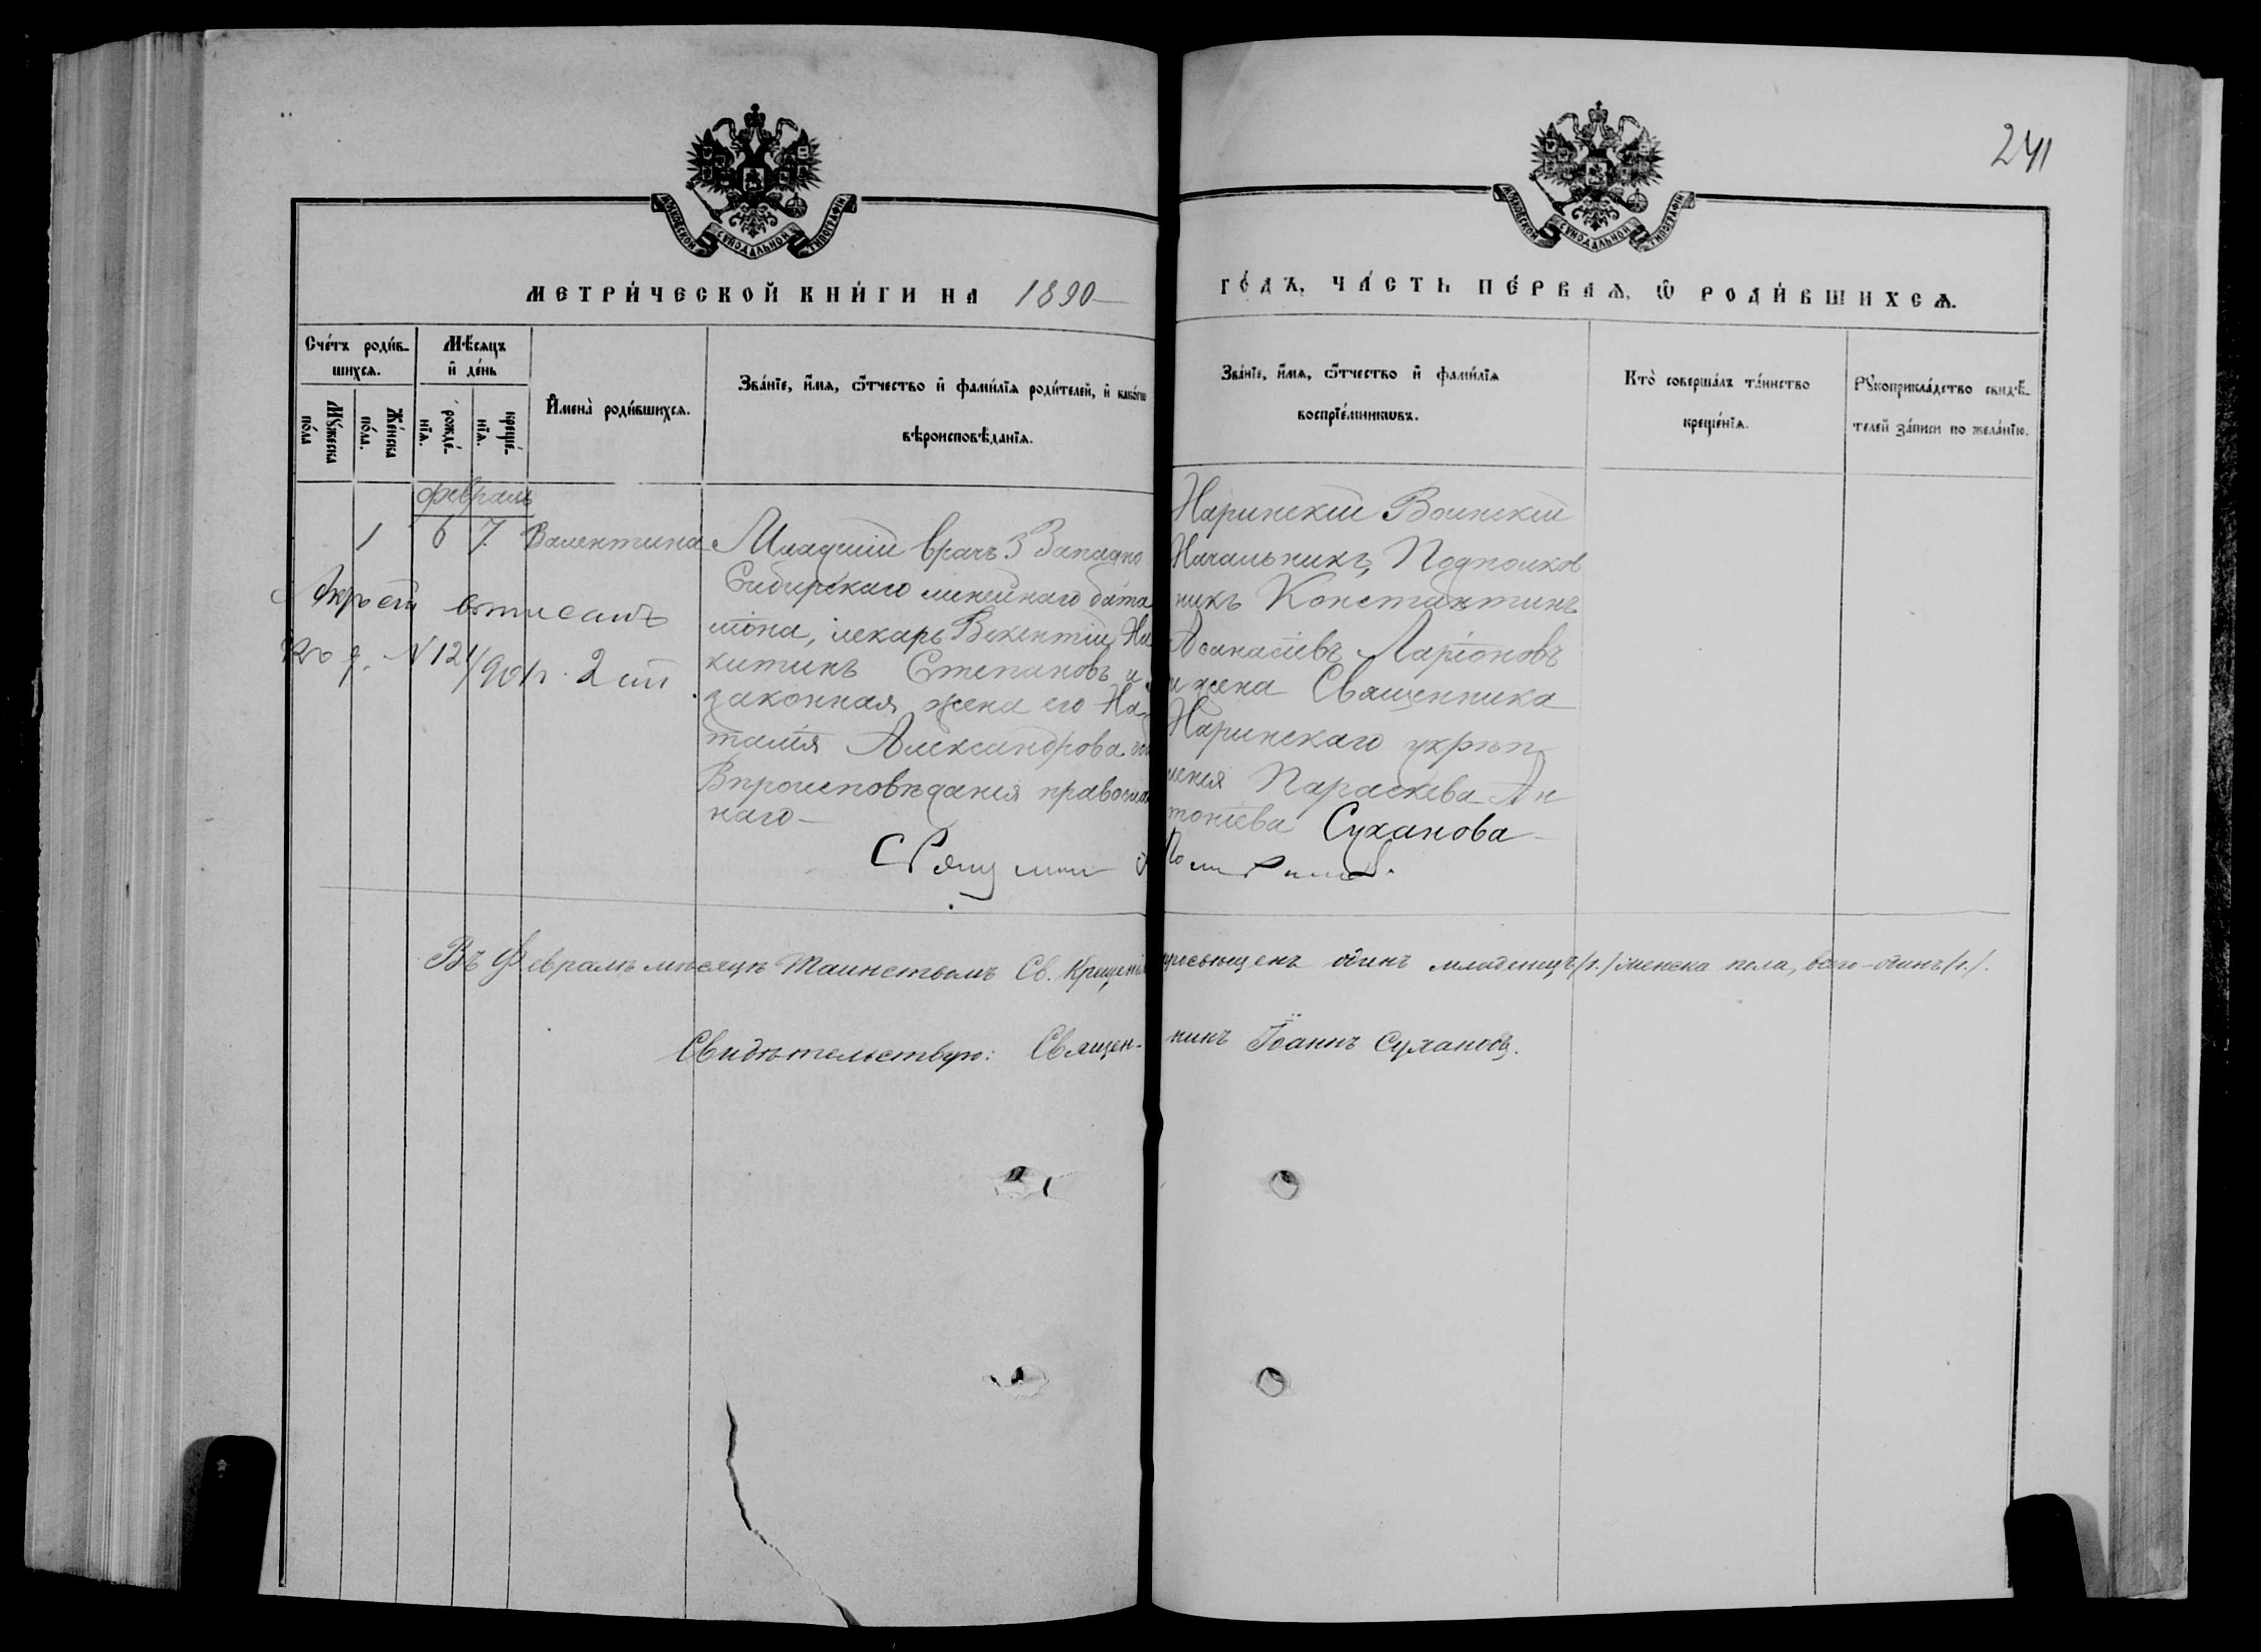 241
МОСКОВСКОЙ СѴНОДАЛЬНОЙ ТИПОГРАФІИ
МОСКОВСКОЙ СѴНОДАЛЬНОЙ ТИПОГРАФІИ
МЕТРИ́ЧЕСКОЙ КНИ́ГИ НА 1890
ГО́ДЪ, ЧА́СТЬ ПЕ́РВАѦ, Ѡ҆ РОДИ́ВШИХСѦ.
Сче́тъ роди́в-
шихсѧ.
Мꙋ́жеска
по́ла
Же́нска
по́ла.
Мѣ́сѧцъ
и҆ де́нь
рожде́-
нїѧ.
креще́-
нїѧ.
И҆мена̀ роди́вшихсѧ.
Зва́нїе, и҆́мѧ, ѻ҆́тчество и҆ фами́лїѧ роди́телей, и҆ како́гѡ
вѣроисповѣ́данїѧ.
Зва́нїе, и҆́мѧ, ѻ҆́тчество и҆ фами́лїѧ
воспрїе́мникѡвъ.
Кто̀ соверша́лъ та́инство
креще́нїѧ.
Рꙋкоприкла́дство свидѣ́-
телей за́писи по жела́нїю.
Февраль
1 6 7. Валентина
Младшій врачъ 3 Западно
Сибирскаго линейнаго бата
ліона, лекарь Викентій Ни
китинъ Степановъ и
законная жена его На
талія Александрова
Вѣроисповѣданія православ
наго
№ 121/901 г. 2 ст
Наринскій Воинскій
Начальникъ, Подполков
никъ Константинъ
Аѳанасіевъ Ларіоновъ
и жена Священника
Наринскаго укрѣп
ленія Параскева Ан
тоніева Суханова
Въ Февралѣ мѣсяцѣ Таинствомъ Св. Крещенія просвѣщенъ одинъ младенецъ /1./ женска пола, всего - одинъ /1./.
Свидѣтельствую: Священ-никъ Іоаннъ Сухановъ.